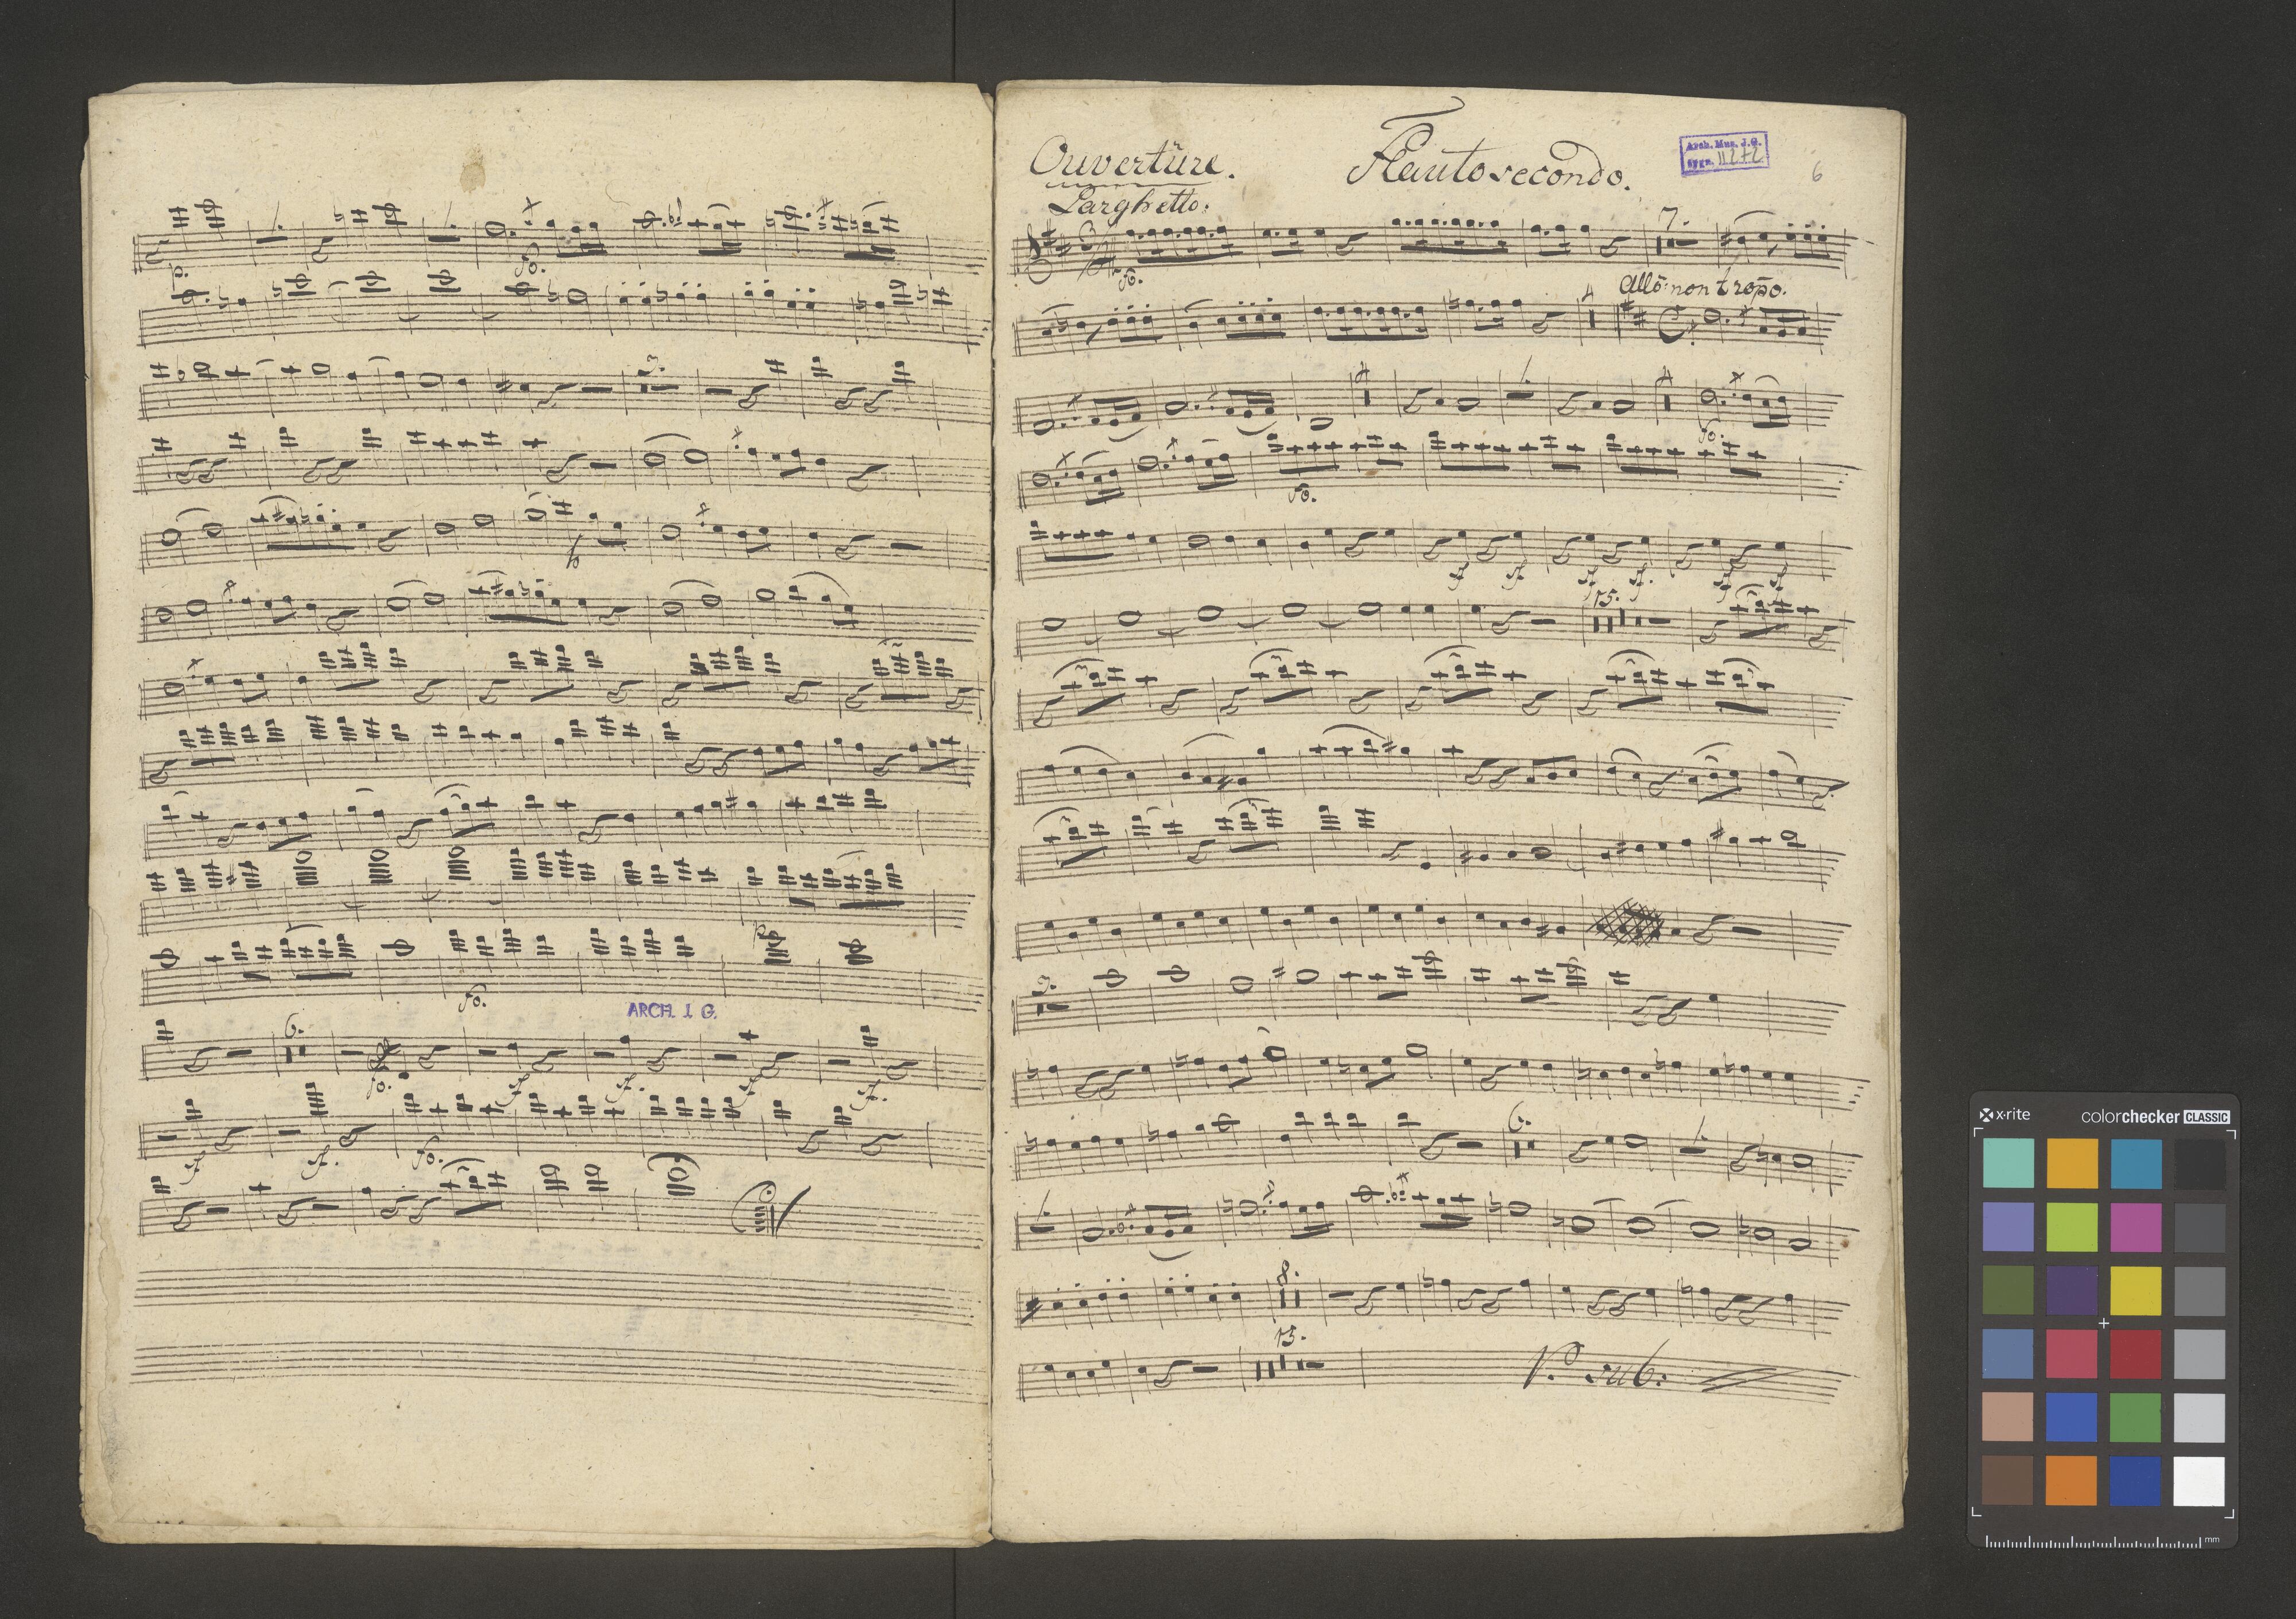 p.
fo.
3.
fo.
p
fo.
ARCH. J. G.
6.
fo. sf sf. sf sf.
sf sf. fo.
Ouvertüre. Flauto secondo.
Arch. Mus. J.G.
Sygn. II 272
6
Larghetto:
3/4 fo. 7.
Allo: non tropo.
fo.
fo.
sf sf. sf sf. sf sf
15.
9.
6.
8.
15.
V. sub:
x·rite colorchecker CLASSIC
mm